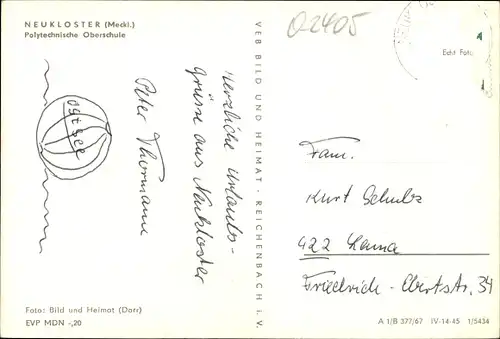 NEUKLOSTER (Meckl.)
Polytechnische Oberschule
Ostsee
Herzliche Urlaubs-
grüsse aus Neukloster
Peter Thormann
Foto: Bild und Heimat (Dorr)
EVP MDN -,20
VEB BILD UND HEIMAT · REICHENBACH i. V.
02405
Echt Foto
Fam.
Kurt Schulz
422 Leuna
Friedrich-Ebertstr. 34
A 1/B 377/67 IV-14-45 1/5434